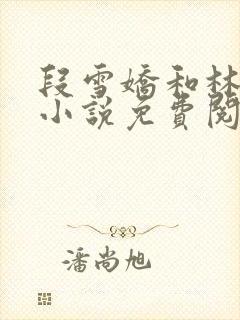 段雪嬌和林
小說免費閱
潘尚旭